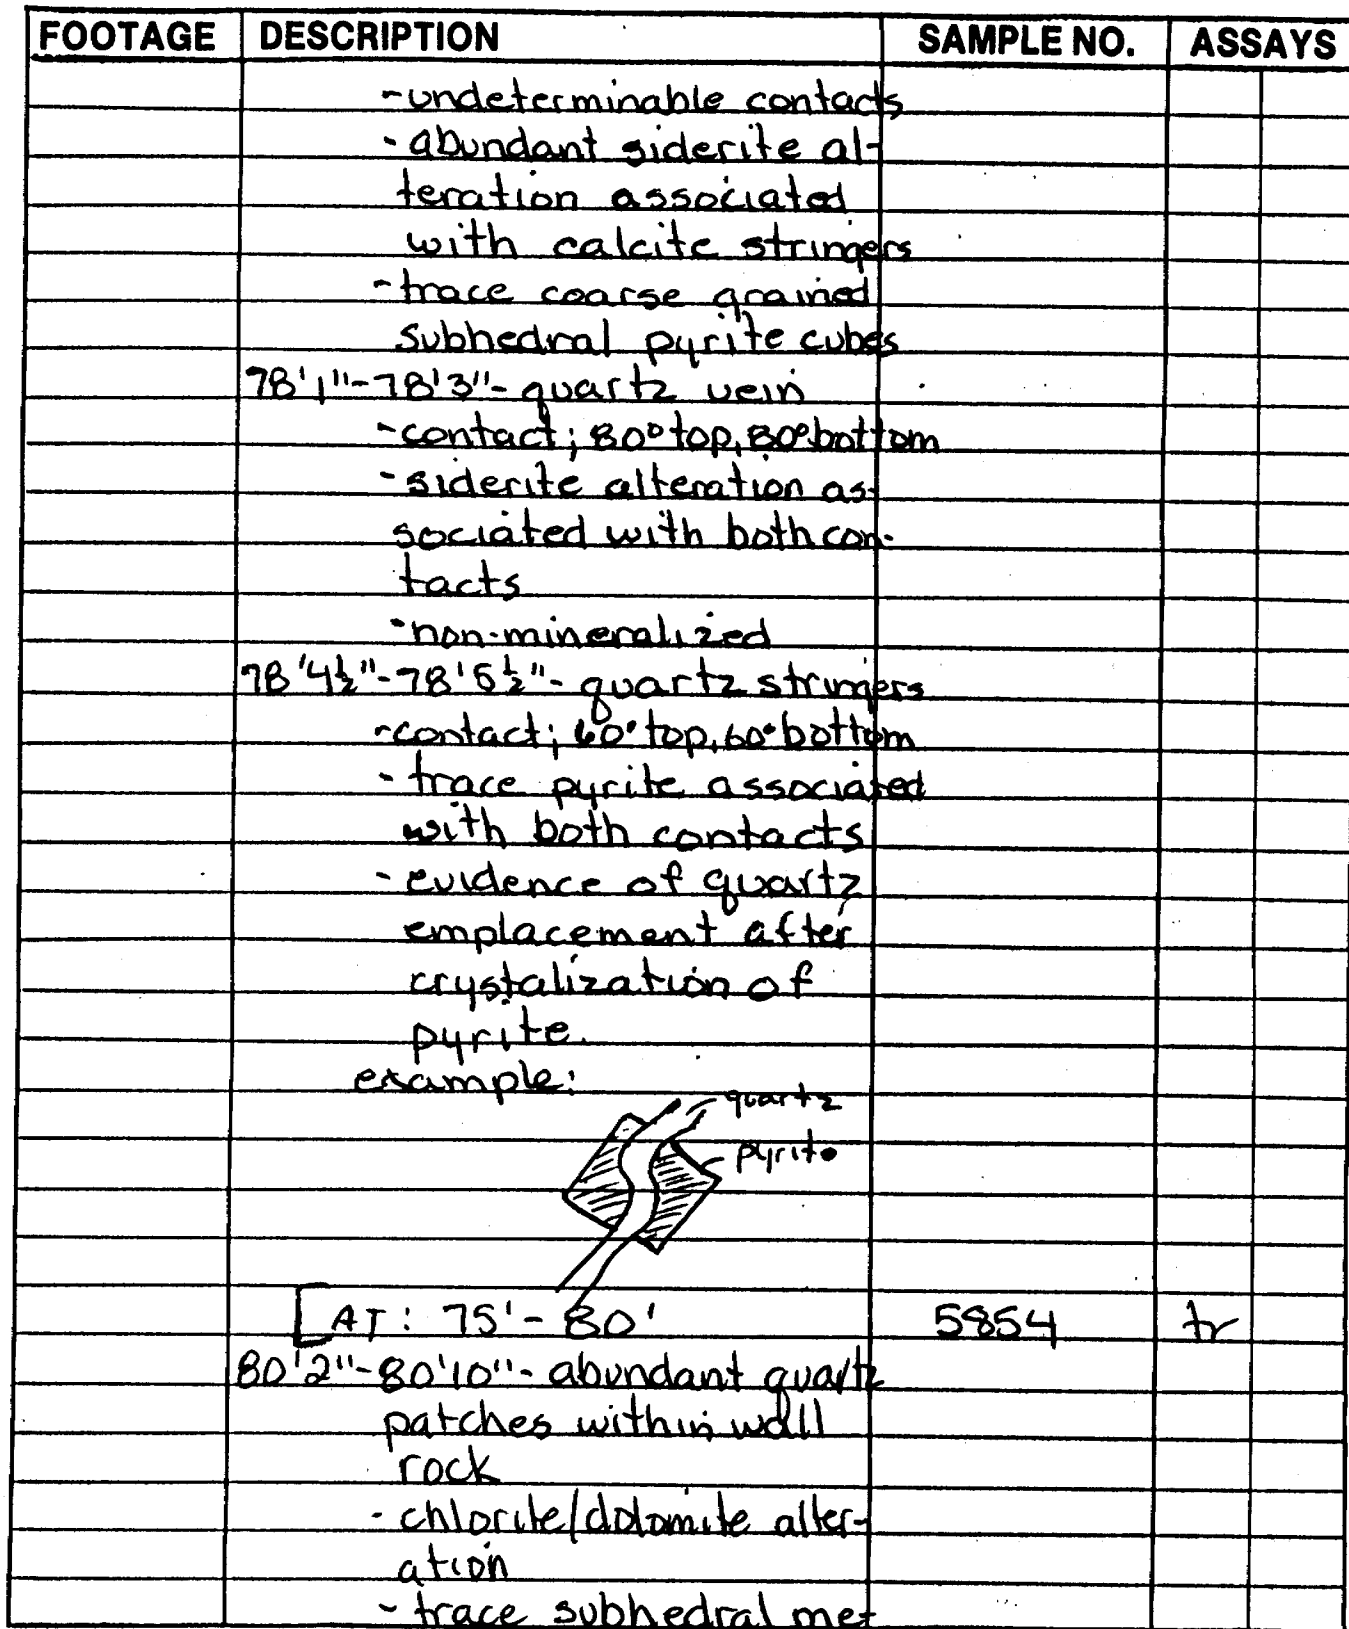 FOOTAGE DESCRIPTION SAMPLE NO. ASSAYS
-undeterminable contacts
-abundant siderite al-
teration associated
with calcite stringers
-trace coarse grained
subhedral pyrite cubes
78'1"-78'3"-quartz vein
-contact; 80° top, 80° bottom
-siderite alteration as-
sociated with both con-
tacts
-non-mineralized
78'4½"-78'5½"-quartz stringers
-contact; 60° top, 60° bottom
-trace pyrite associated
with both contacts
-evidence of quartz
emplacement after
crystalization of
pyrite.
example:
quartz
pyrite
[AT: 75'-80' 5854 tr
80'2"-80'10"-abundant quartz
patches within wall
rock
-chlorite/dolomite alter-
ation
-trace subhedral met